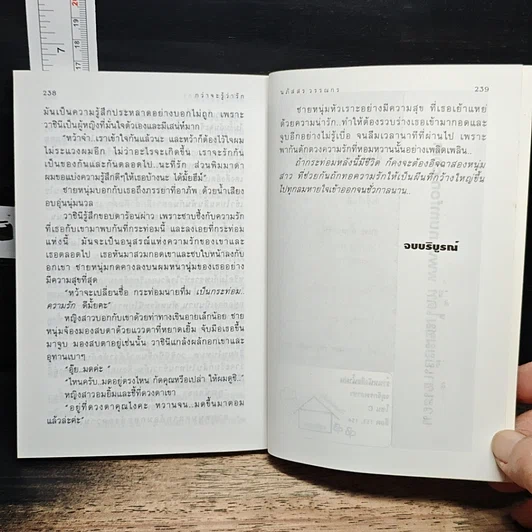 7
238
กว่าจะรู้ว่ารัก
มันเป็นความรู้สึกประหลาดอย่างบอกไม่ถูก เพราะ
วาชินีเป็นผู้หญิงที่มั่นใจตัวเองและมีเสน่ห์มาก
"หว้าจ๋า..เราเข้าใจกันแล้วนะ และหว้าก็ต้องไว้ใจผม
ไม่ระแวงผมอีก ไม่ว่าอะไรจะเกิดขึ้น เราจะรักกัน
เป็นของกันและกันตลอดไป...นะที่รัก สวนพิมมาดา
ผมขอแบ่งความรู้สึกดีๆให้เธอบ้างนะ ได้มั้ยฮึม"
ชายหนุ่มบอกกับเธอถึงภรรยาที่อาภัพ ด้วยน้ำเสียง
อบอุ่นนุ่มนวล
วาชินีรู้สึกขอบตาร้อนผ่าว เพราะซาบซึ้งกับความรัก
ที่เธอกับเขามาพบกันที่กระท่อมนี้ และลงเอยที่กระท่อม
แห่งนี้ มันจะเป็นอนุสรณ์แห่งความรักของเขาและ
เธอตลอดไป เธอหันมาสวมกอดเขาและซบใบหน้าลงกับ
อกเขา ชายหนุ่มกดคางลงบนผมหน้านุ่มของเธออย่าง
มีความสุขที่สุด
"หว้าจะเปลี่ยนชื่อ กระท่อมนายขึ้ม เป็นกระท่อม..
ความรัก ดีมั้ยคะ"
หญิงสาวบอกกับเขาด้วยท่าทางเขินอายเล็กน้อย ชาย
หนุ่มจ้องมองสบตาด้วยแววตาที่หยาดเยิ้ม จับมือเธอขึ้น
มาจูบ มองสบตาอยู่เช่นนั้น วาชินีแกล้งผลักอกเขาและ
อุทานเบาๆ
"อุ๊ย..มดค่ะ"
"ไหนครับ..มดอยู่ตรงไหน กัดคุณหรือเปล่า ให้ผมดูซิ.."
หญิงสาวอมยิ้มและชี้ที่ดวงตาเขา
"อยู่ที่ดวงตาคุณไงคะ หวานจน..มดขึ้นมาตอม
แล้วล่ะค่ะ"
นภัสสา วรรณกร
239
ชายหนุ่มหัวเราะอย่างมีความสุข ที่เธอเย้าแหย่
ด้วยความน่ารัก..ทำให้ต้องรวบร่างเธอเข้ามากอดและ
จูบอีกอย่างไม่รู้เบื่อ จนลืมเวลานาทีที่ผ่านไป เพราะ
พากันตักตวงความรักที่หอมหวานนั้นอย่างเพลิดเพลิน..
ถ้ากระท่อมหลังนี้มีชีวิต ก็คงจะต้องอิจฉาสองหนุ่ม
สาว ที่ช่วยกันถักทอความรักให้เป็นผืนที่กว้างใหญ่ขึ้น
ไปทุกลมหายใจเข้าออกจนชั่วกาลนาน..
จบบริบูรณ์